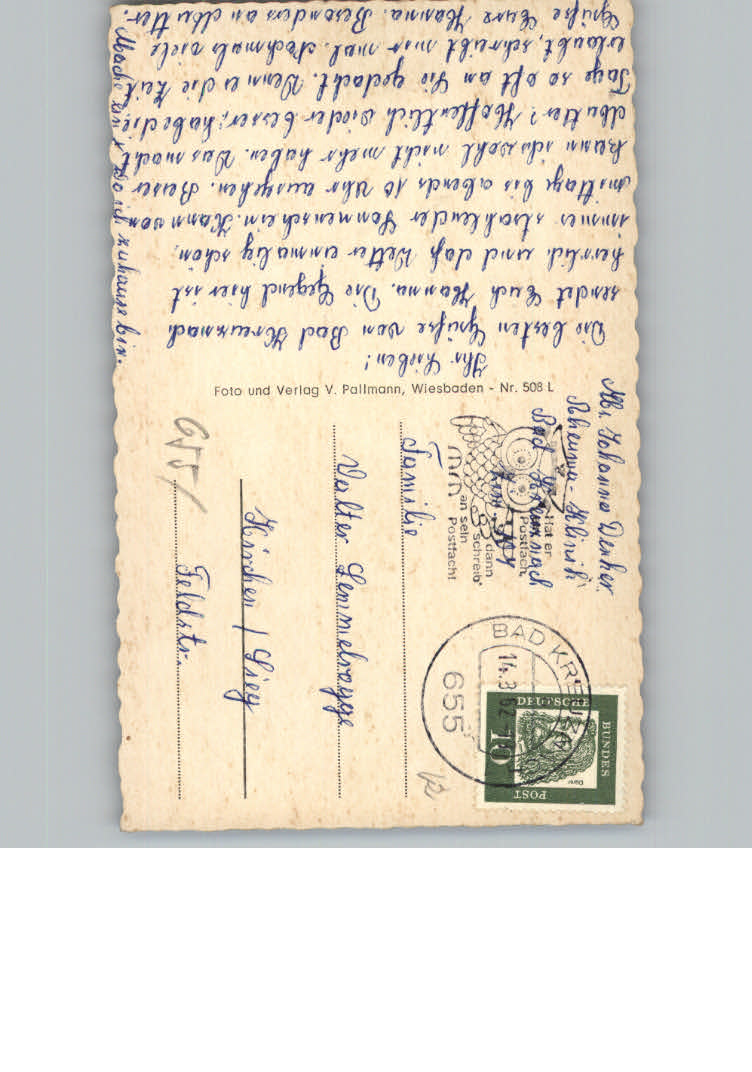 Ihr Lieben!
Die besten Grüße von Bad Kreuznach
sendet Euch Hanna. Die Gegend hier ist
herrlich und daß Wetter einmalig schön,
immer strahlender Sonnenschein. Kann von
mittags bis abends 10 Uhr ausgehen. Besser
kann ichs wohl nicht mehr haben. Was macht
Mutter? Hoffentlich wieder besser; habe die
Tage so oft an Sie gedacht. Wenn es die Zeit
erlaubt, schreibt mir mal. Nochmals viele
Grüße Eure Hanna. Besonders an Mutter.
zuhause bin.
Foto und Verlag V. Pallmann, Wiesbaden - Nr. 508 L
Abs. Johanna
Rheuma Klinik
Bad Kreuznach
Hat er
Postfach,
dann
schreib'
an sein
Postfach!
BAD KREUZNACH
14.3.62
655
DEUTSCHE
BUNDES
POST
10
Dürer
Familie
Walter
Kirchen / Sieg
Feldstr.
655